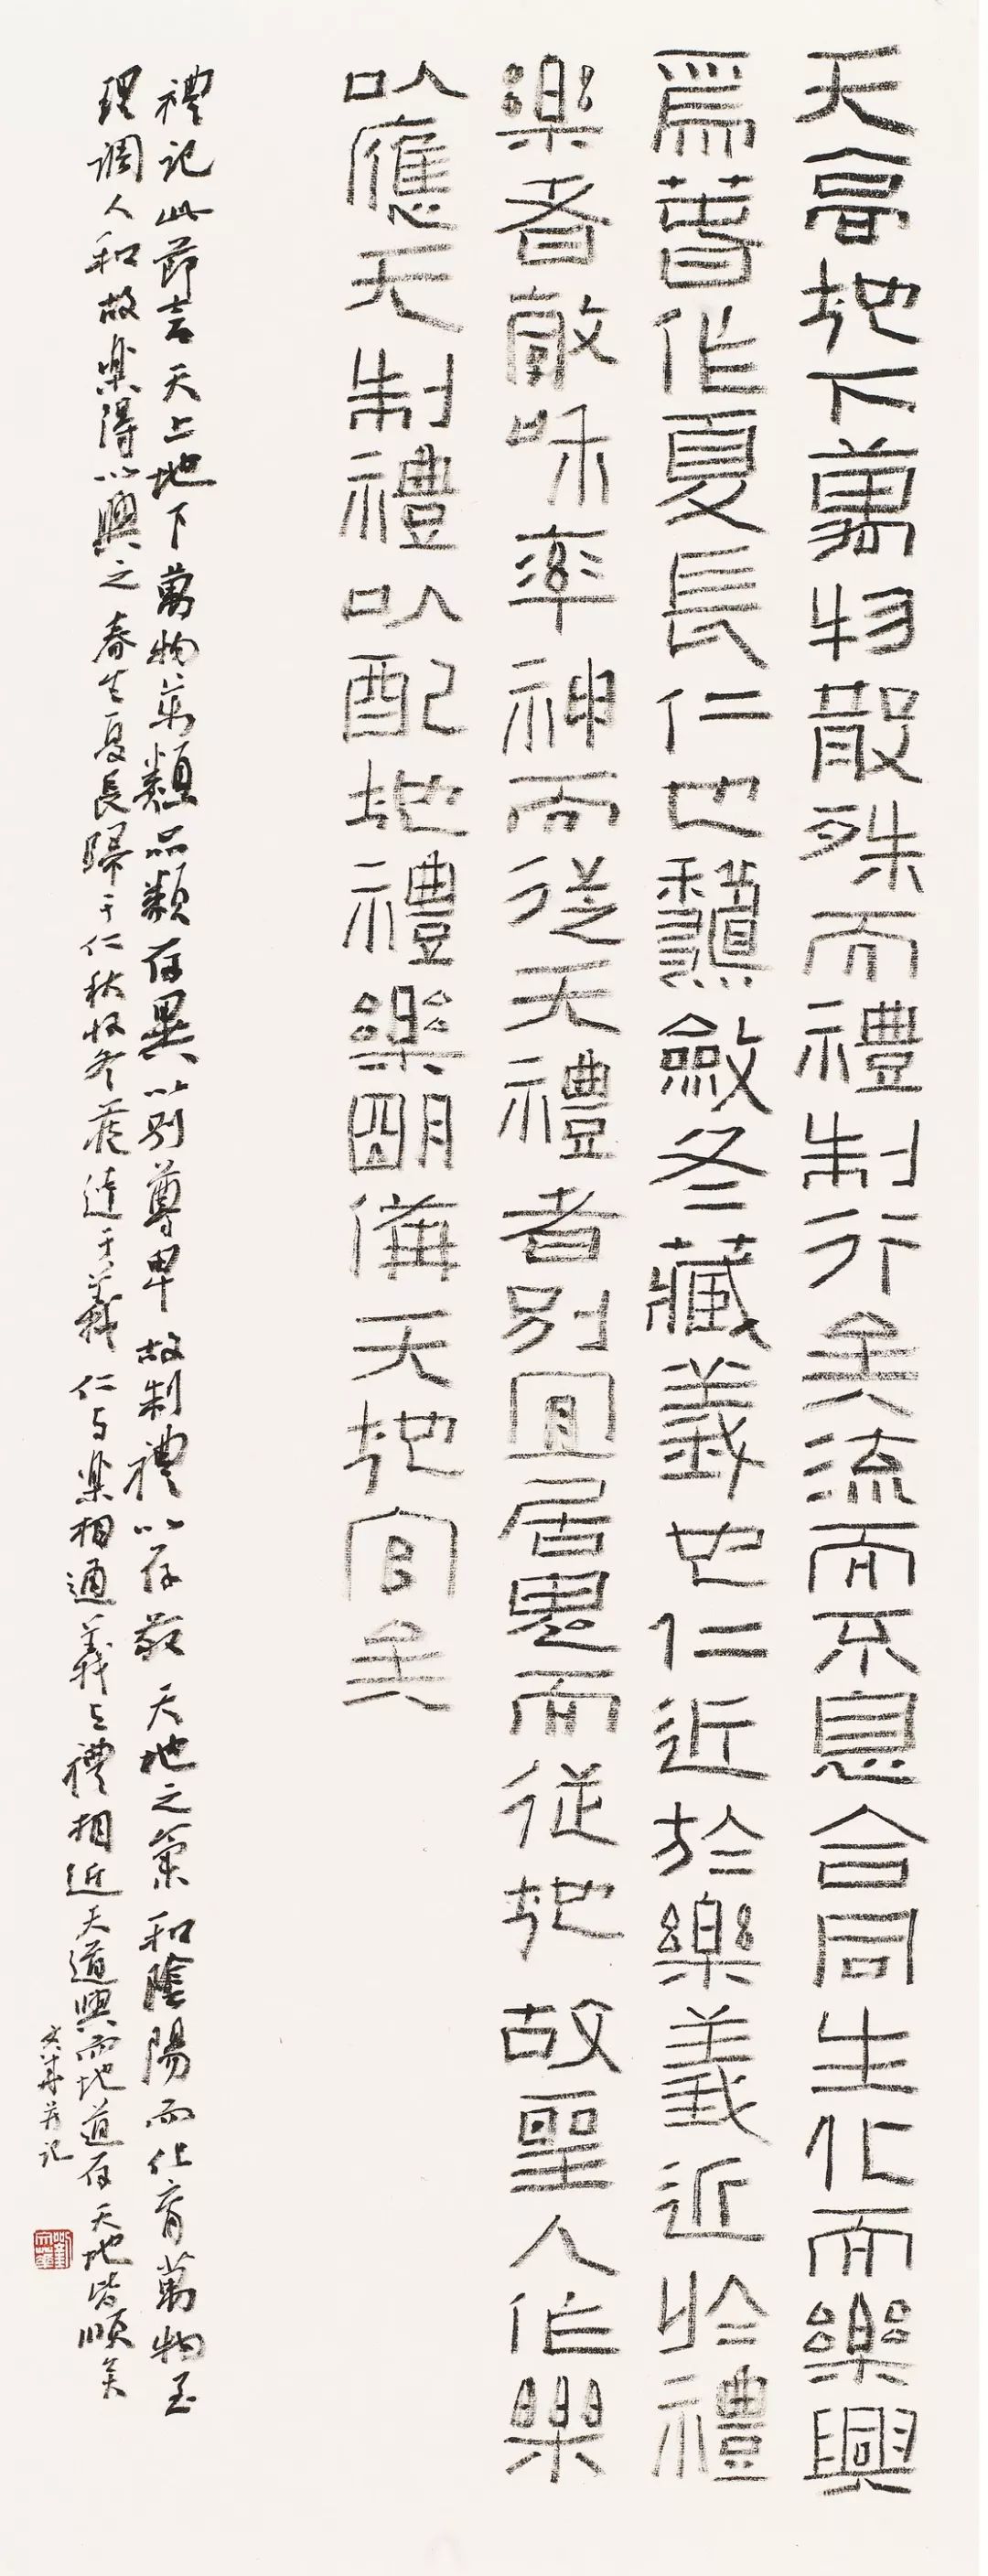 天高地下萬物散殊而禮制行矣流而不息合同生化而樂興
焉春作夏長仁也龝斂冬藏義也仁近於樂義近於禮
樂者敦咊率神而從天禮者別宜居鬼而從地故聖人作樂
以應天制禮以配地禮樂朙備天地官矣
禮記此節言天上地下萬物萬類品類有異以别尊卑故制禮以存敬天地之氣和陰陽而化育萬物至
理調人和故樂得以興之春生夏長歸于仁秋收冬藏達于義仁与樂相通義与禮相近天道興而地道存天地皆順矣
文華并记